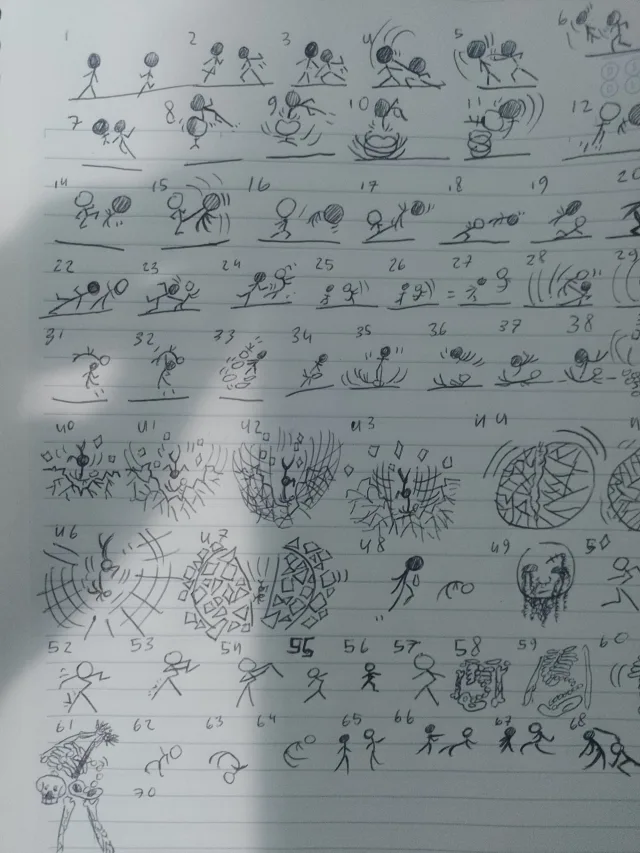 1 2 3 4 5 6
7 8 9 10 11 12
14 15 16 17 18 19 20
22 23 24 25 26 27 28 29
31 32 33 34 35 36 37 38
40 41 42 43 44
46 47 48 49 50
52 53 54 55 56 57 58 59 60
61 62 63 64 65 66 67 68
70